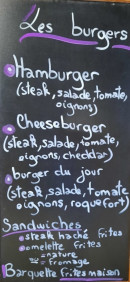 Les burgers
Hamburger
(steak, salade, tomate,
oignons)
Cheeseburger
(steak, salade, tomate,
oignons, cheddar)
burger du jour
(steak, salade, tomate
oignons, roquefort)
Sandwiches
steak haché frites
omelette frites
nature
fromage
Barquette frites maison